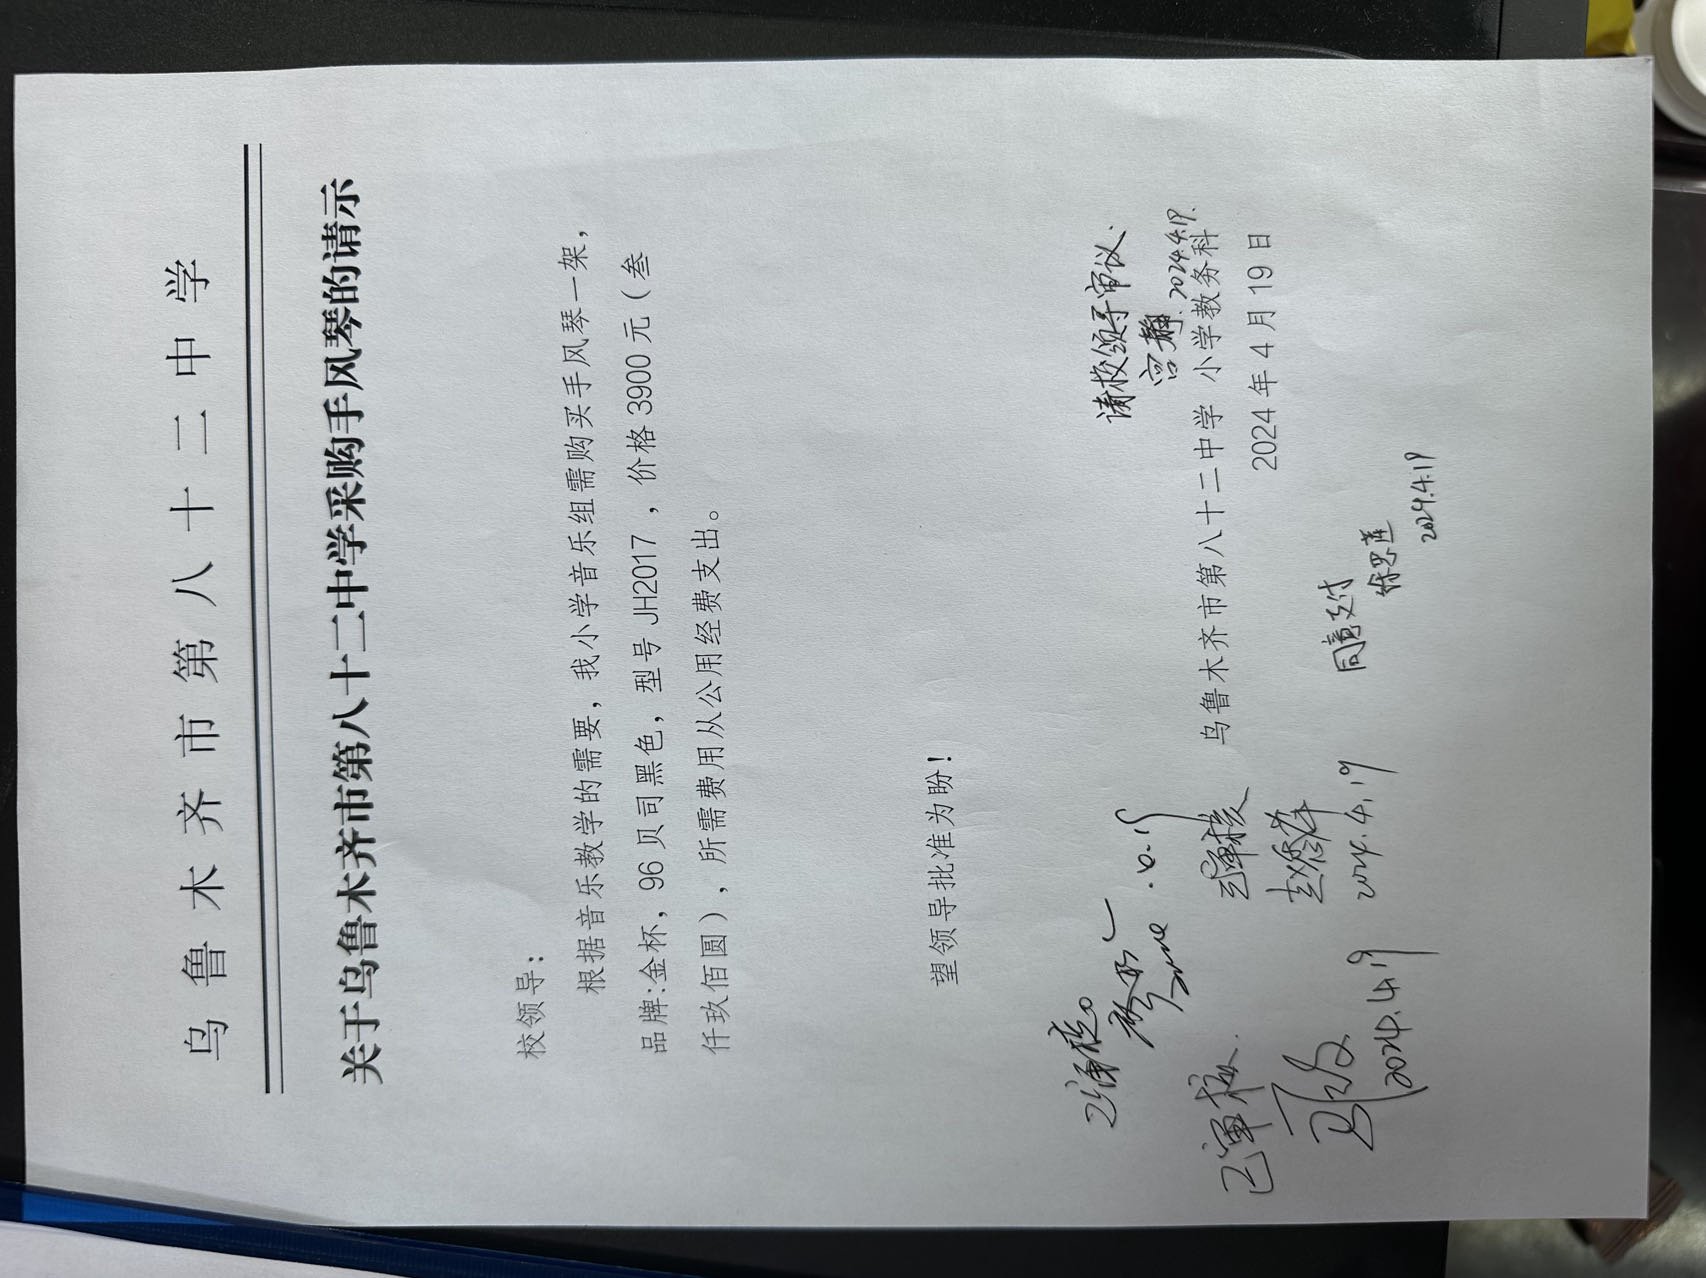 乌鲁木齐市第八十二中学
关于乌鲁木齐市第八十二中学采购手风琴的请示
校领导：
根据音乐教学的需要，我小学音乐组需购买手风琴一架，
品牌:金杯，96贝司黑色，型号JH2017，价格3900元（叁
仟玖佰圆），所需费用从公用经费支出。
望领导批准为盼！
请校领导审议.
宫静 2024.4.19.
乌鲁木齐市第八十二中学 小学教务科
2024年4月19日
已审核。
已审核
赵秀萍
2024.4.19
已审核.
2024.4.19
同意支付
徐思莲
2024.4.19